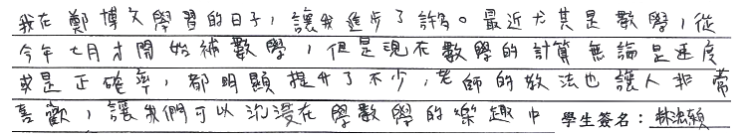 我在鄭博文學習的日子，讓我進步了許多。最近尤其是數學，從
今年七月才開始補數學，但是現在數學的計算無論是速度
或是正確率，都明顯提升了不少，老師的教法也讓人非常
喜歡，讓我們可以沉浸在學數學的樂趣中 學生簽名：林